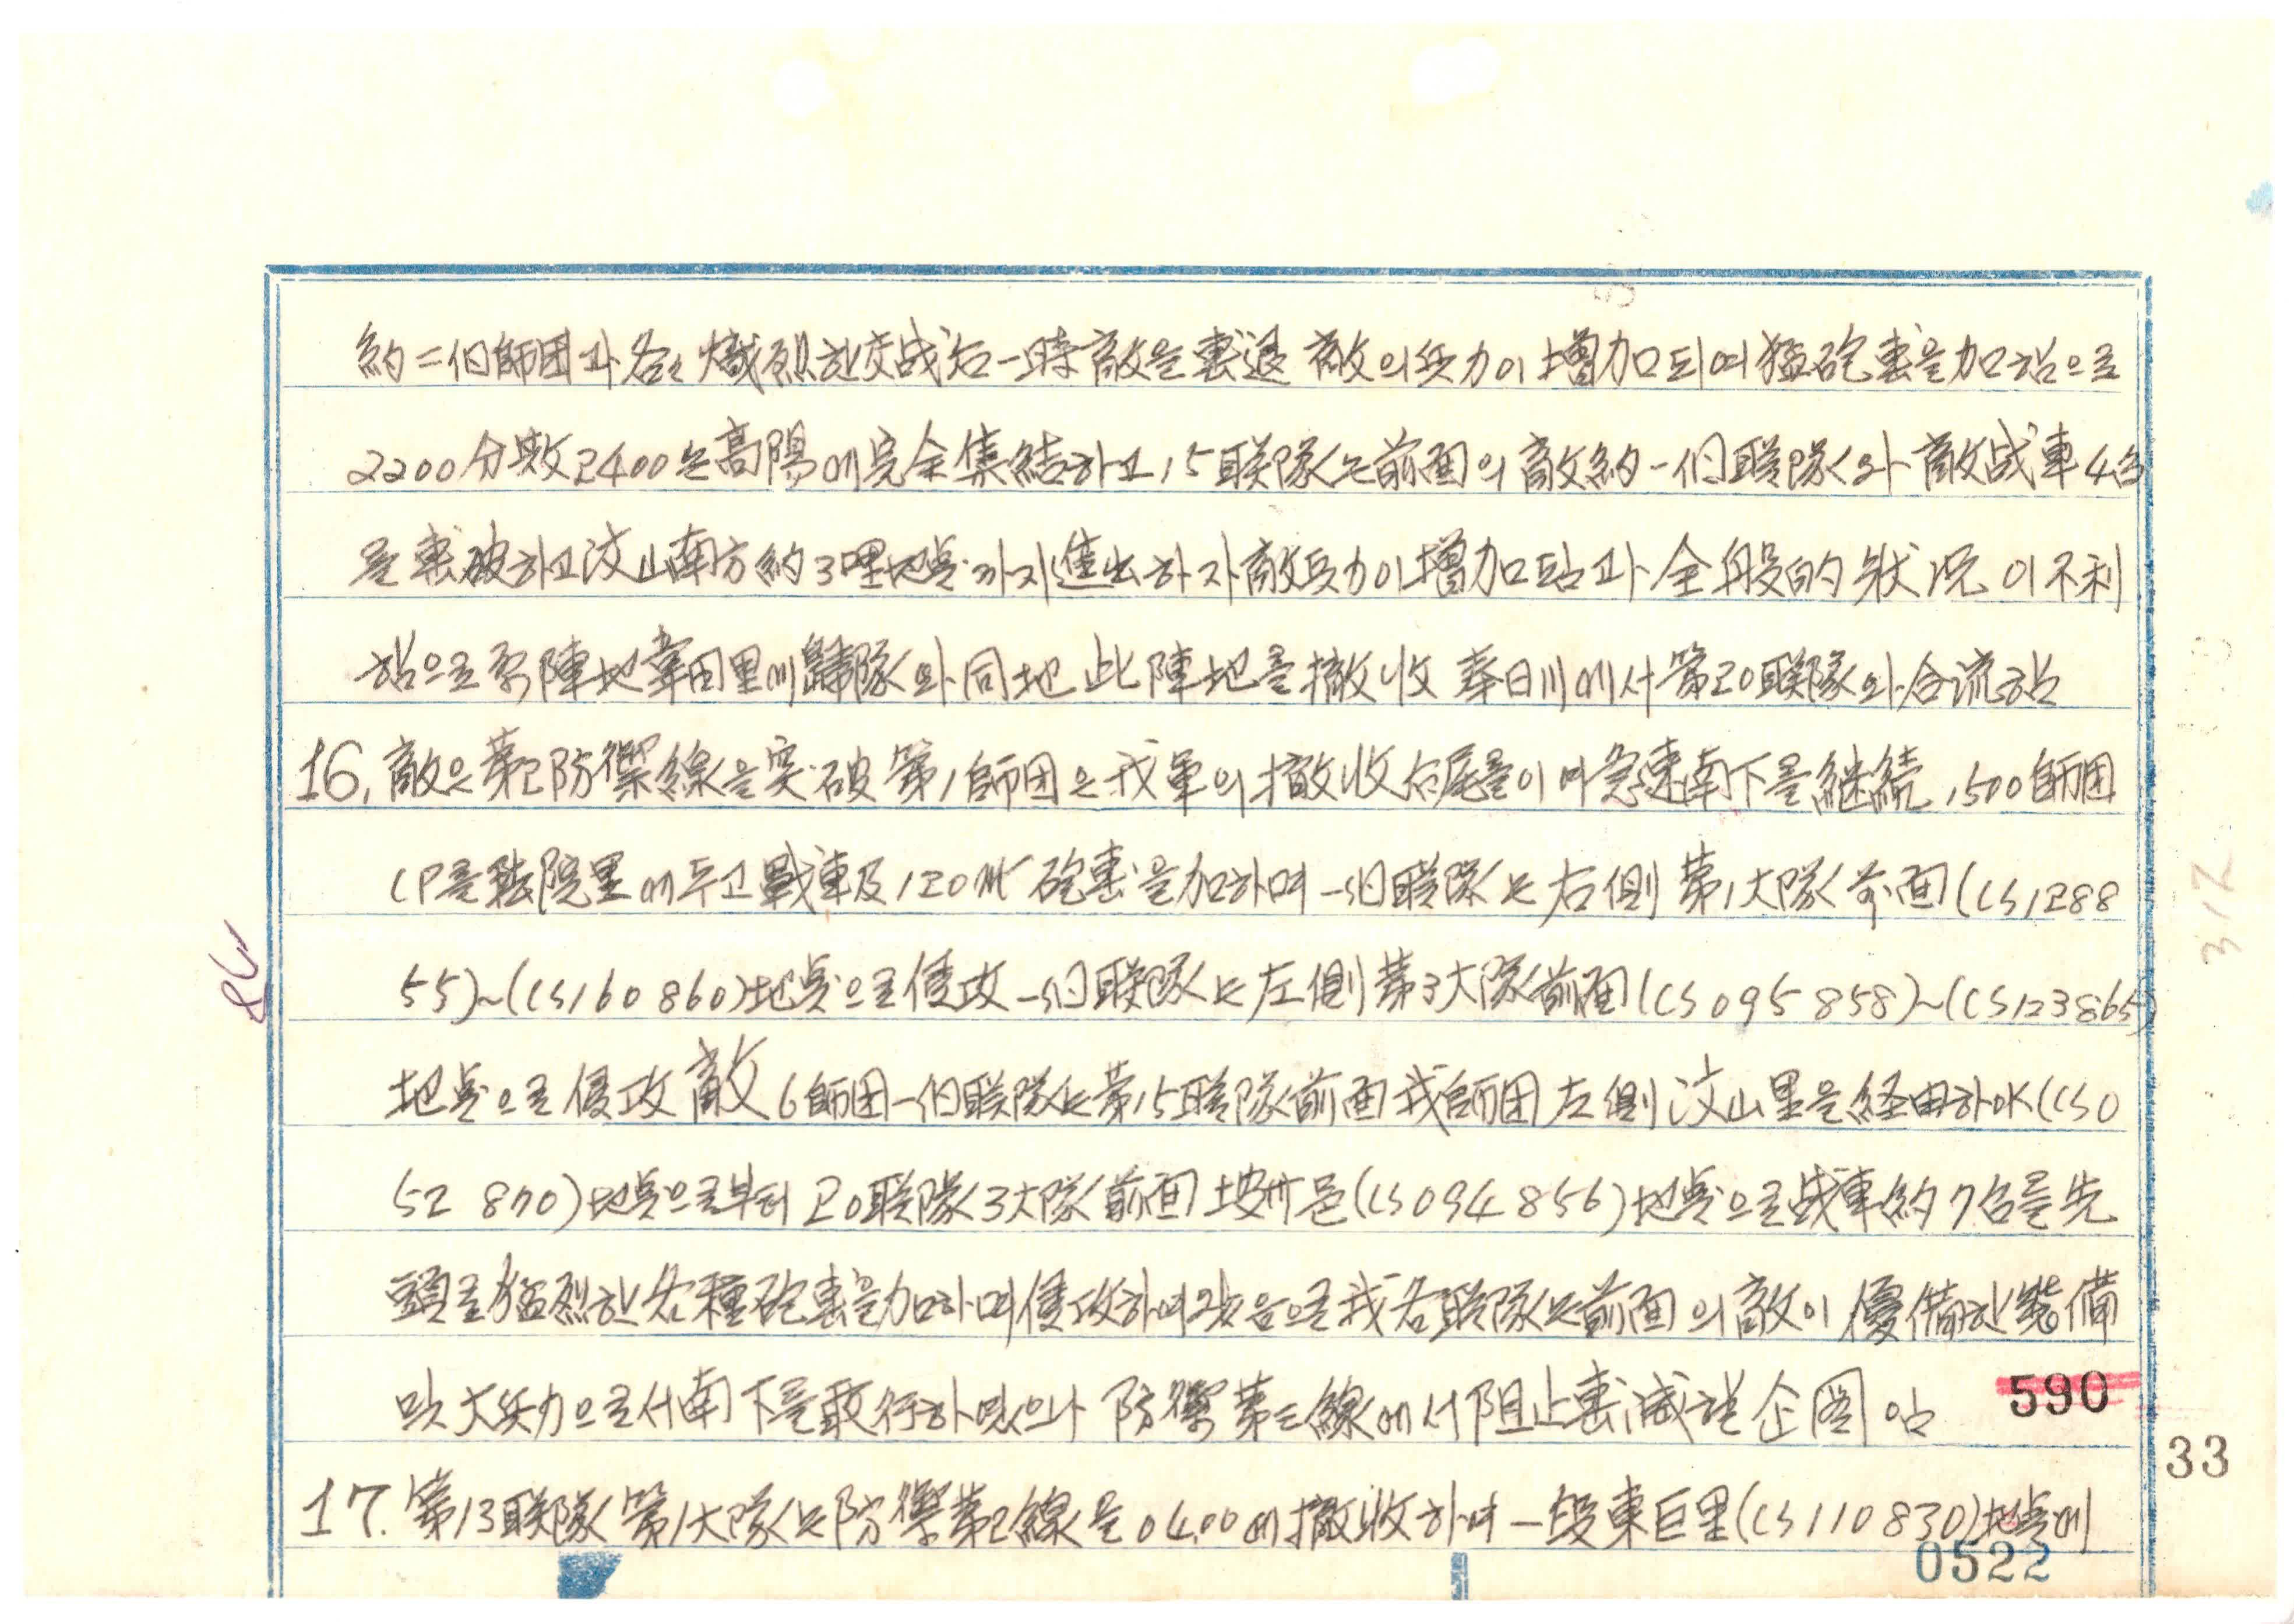 約二個師団과 各々 熾烈한 交战后 一時 敵을 擊退 敵의 兵力이 增加되여 猛砲擊을 加함으로
2200分散 2400은 高陽에 完全集結하고 15联隊는 前面의 敵 約一個联隊와 敵战車4台
를 擊破하고 汶山南方約3哩地点까지 進出하자 敵兵力이 增加됨과 全般的 狀況이 不利
함으로 原陣地 韋田里에 歸隊와 同地 此陣地를 撤收 奉日川에서 第20联隊와 合流함
16. 敵은 第2防禦線을 突破 第1師団은 我軍의 撤收 后尾를 이며 急速南下를 継続 1500 師団
CP를 法院里에 두고 戰車及 120㎜ 砲擊을 加하며 一個联隊는 右側 第1大隊 前面(CS1288
55)~(CS160 860)地点으로 侵攻 一個联隊는 左側 第3大隊 前面(CS 095 858)~(CS123865)
地点으로 侵攻 敵 6師団 一個联隊는 第15联隊 前面 我師団 左側 汶山里을 経由하야 (CS0
52 870)地点으로부터 20联隊 3大隊 前面 坡州邑(CS094 856)地点으로 战車 約7台를 先
頭로 猛烈한 各種砲擊을 加하며 侵攻하여 왔음으로 我各联隊는 前面의 敵이 優備한 裝備
및 大兵力으로서 南下를 敢行하였으나 防禦第三線에서 阻止擊滅할 企圖임
590
33
17. 第13联隊 第1大隊는 防禦第2線을 0400에 撤收하여 一段 東巨里(CS110830)地点에
0522
86
312